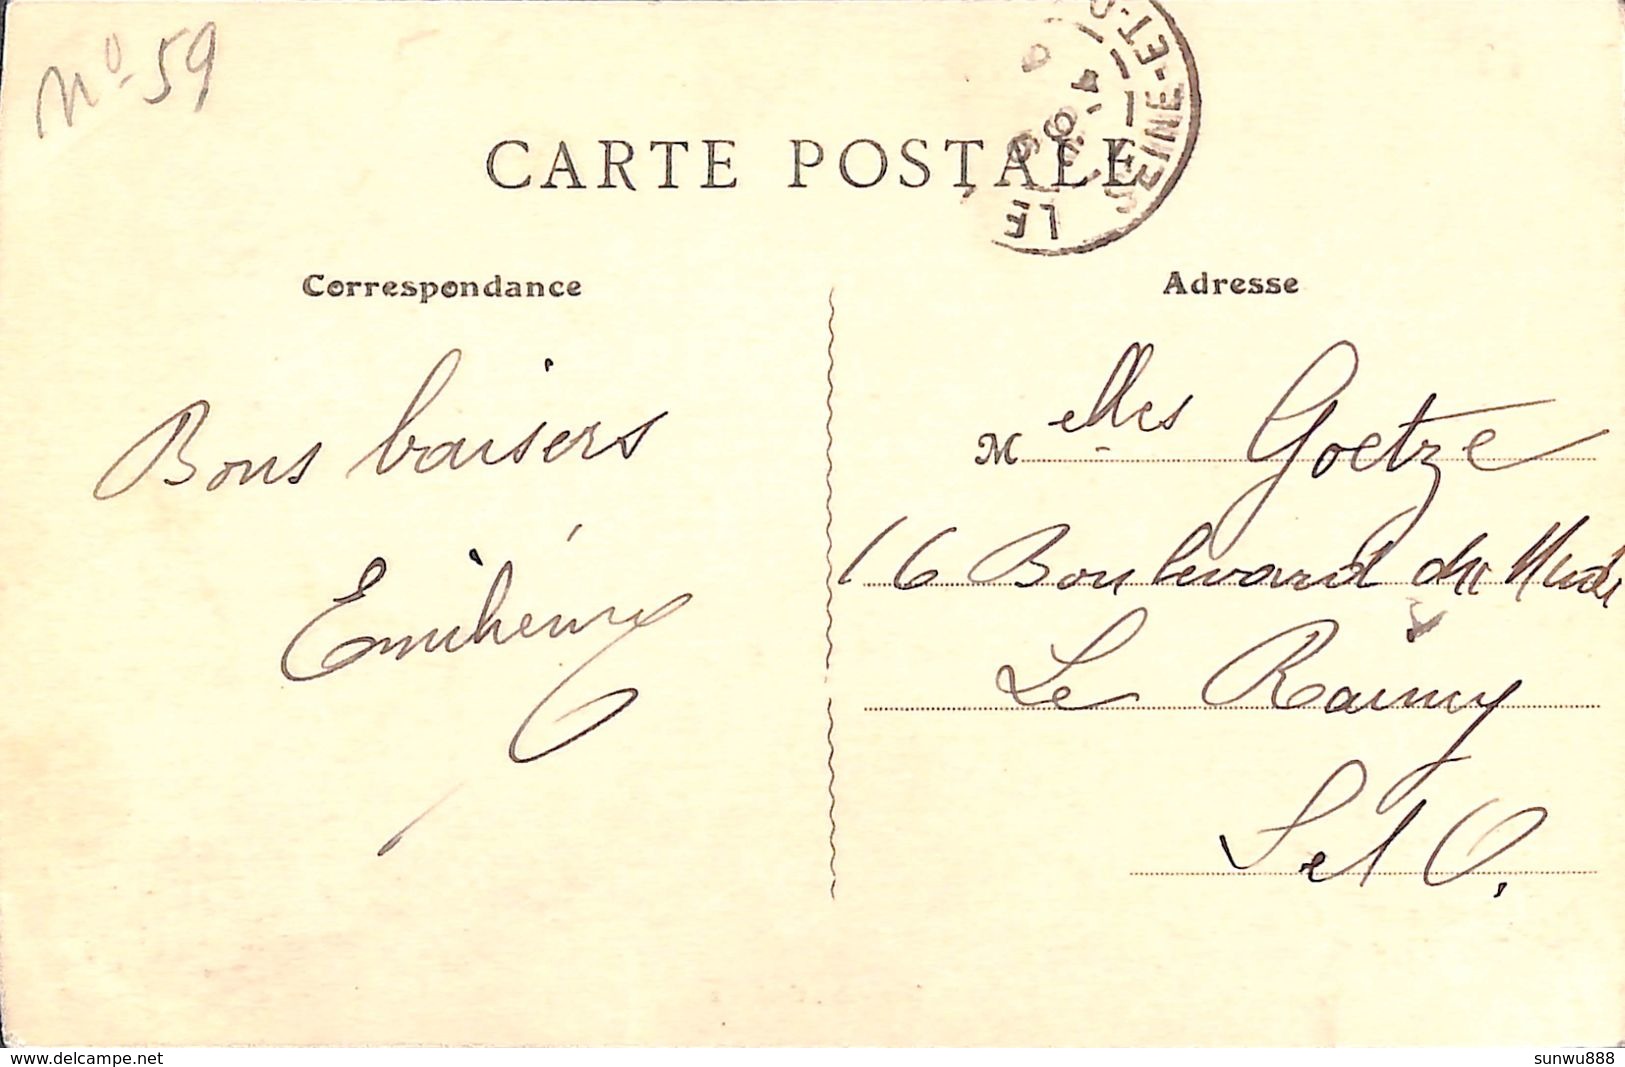 No 59
CARTE POSTALE
LE
SEINE-ET-O
Correspondance
Adresse
Bons baisers
Melles Goetze
16 Boulevard du Midi
Le Raincy
S et O.
www.delcampe.net
sunwu888